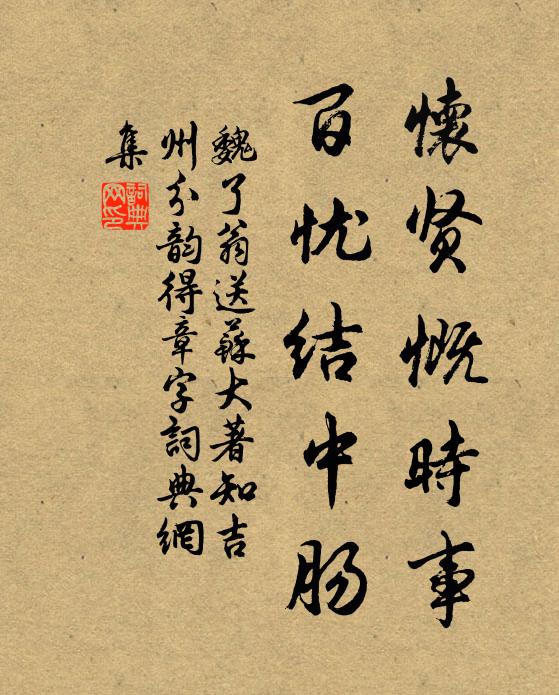 懷贤慨時事
百忧结中肠
魏了翁送蘇大著知吉
州分韵得章字詞典網
集
詞典
网印